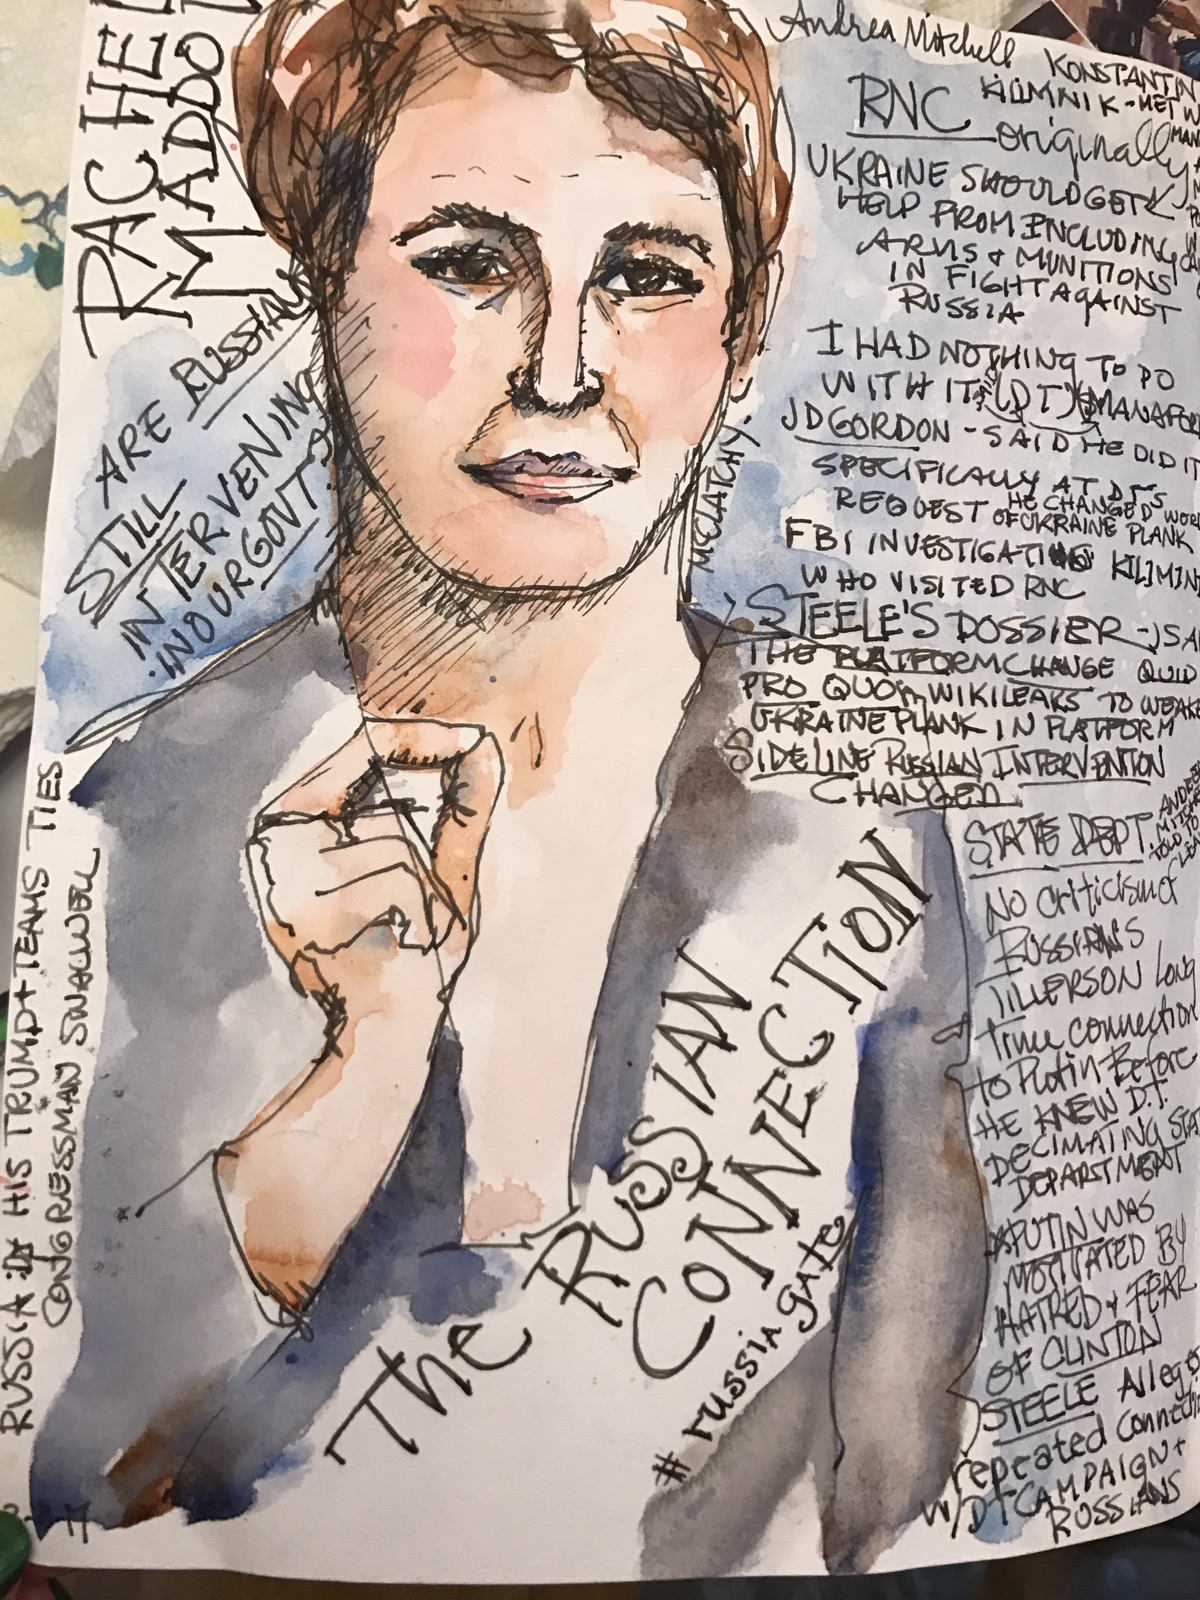 RACHEL
MADDO
ARE RUSSIANS
STILL
INTERVENING
IN OUR GOVT?
RUSSIA :DJ HIS TRUMD+TEAMS TIES
CONGRESSMAN SWALWELL
Andrea Mitchell
KONSTANTIN
KILIMNIK - MET W
RNC originally
UKRAINE SHOULD GET
HELP FROM INCLUDING
ARMS & MUNITIONS
IN FIGHT AGAINST
RUSSIA
I HAD NOTHING TO DO
WITH IT (DT) MANAFOR
JD GORDON - SAID HE DID IT
SPECIFICALLY AT DT'S
REQUEST HE CHANGED WOR
OF UKRAINE PLANK
FBI INVESTIGATING KILIMN
WHO VISITED RNC
MCCLATCHY.
STEELE'S DOSSIER - SA
THE PLATFORM CHANGE QUID
PRO QUO WIKILEAKS TO WEAKE
UKRAINE PLANK IN PLATFORM
SIDELINE RUSSIAN INTERVENTION
CHANGED
STATE DEPT.
No criticism of
RUSSIANS
TILLERSON Long
Time connection
to Putin Before
HE KNEW D.T.
DECIMATING STA
DEPARTMENT
PUTIN WAS
MOTIVATED BY
HATRED + FEAR
OF CLINTON
STEELE Alleges
repeated connecti
W/DT CAMPAIGN +
RUSSIANS
The RUSSIAN
CONNECTION
#russiagate
17